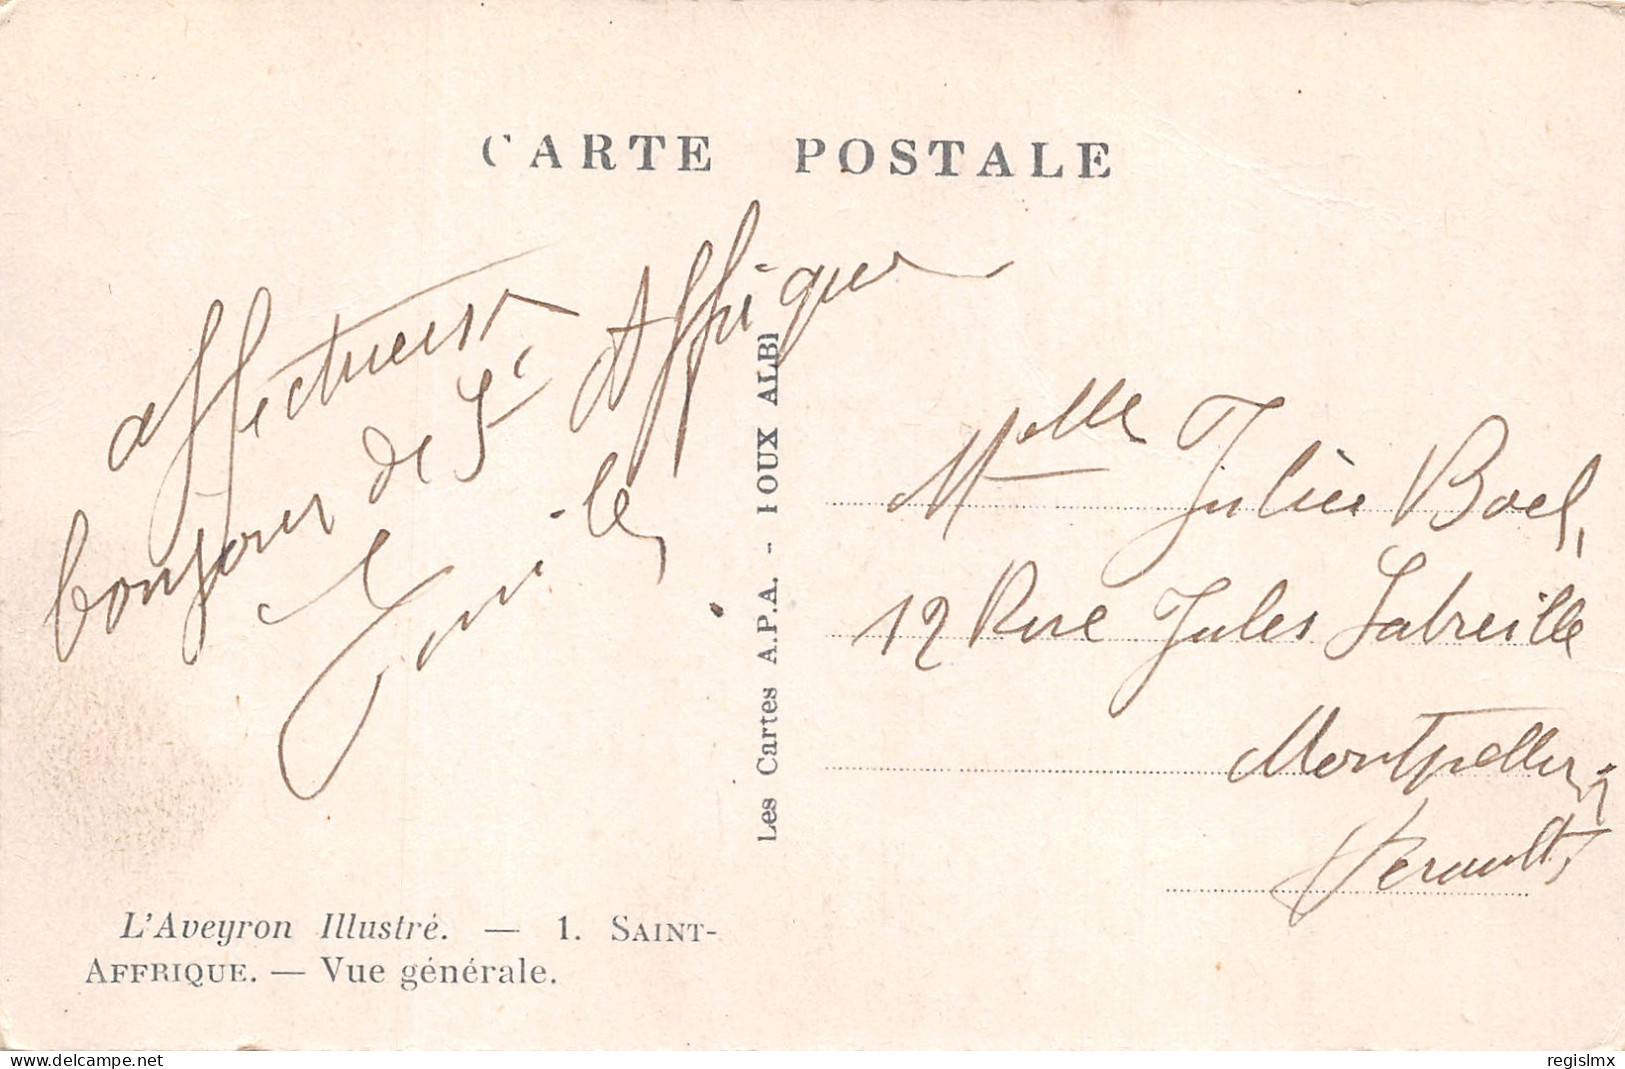 CARTE POSTALE
affectueux
bonjour de St Affrique
Les Cartes A.P.A. - POUX ALBI
Melle Julie Boel,
12 Rue Jules Latreille
Montpellier
Herault
L'Aveyron Illustré. — 1. SAINT-
AFFRIQUE. — Vue générale.
https://www.delcampe.net
regislmx